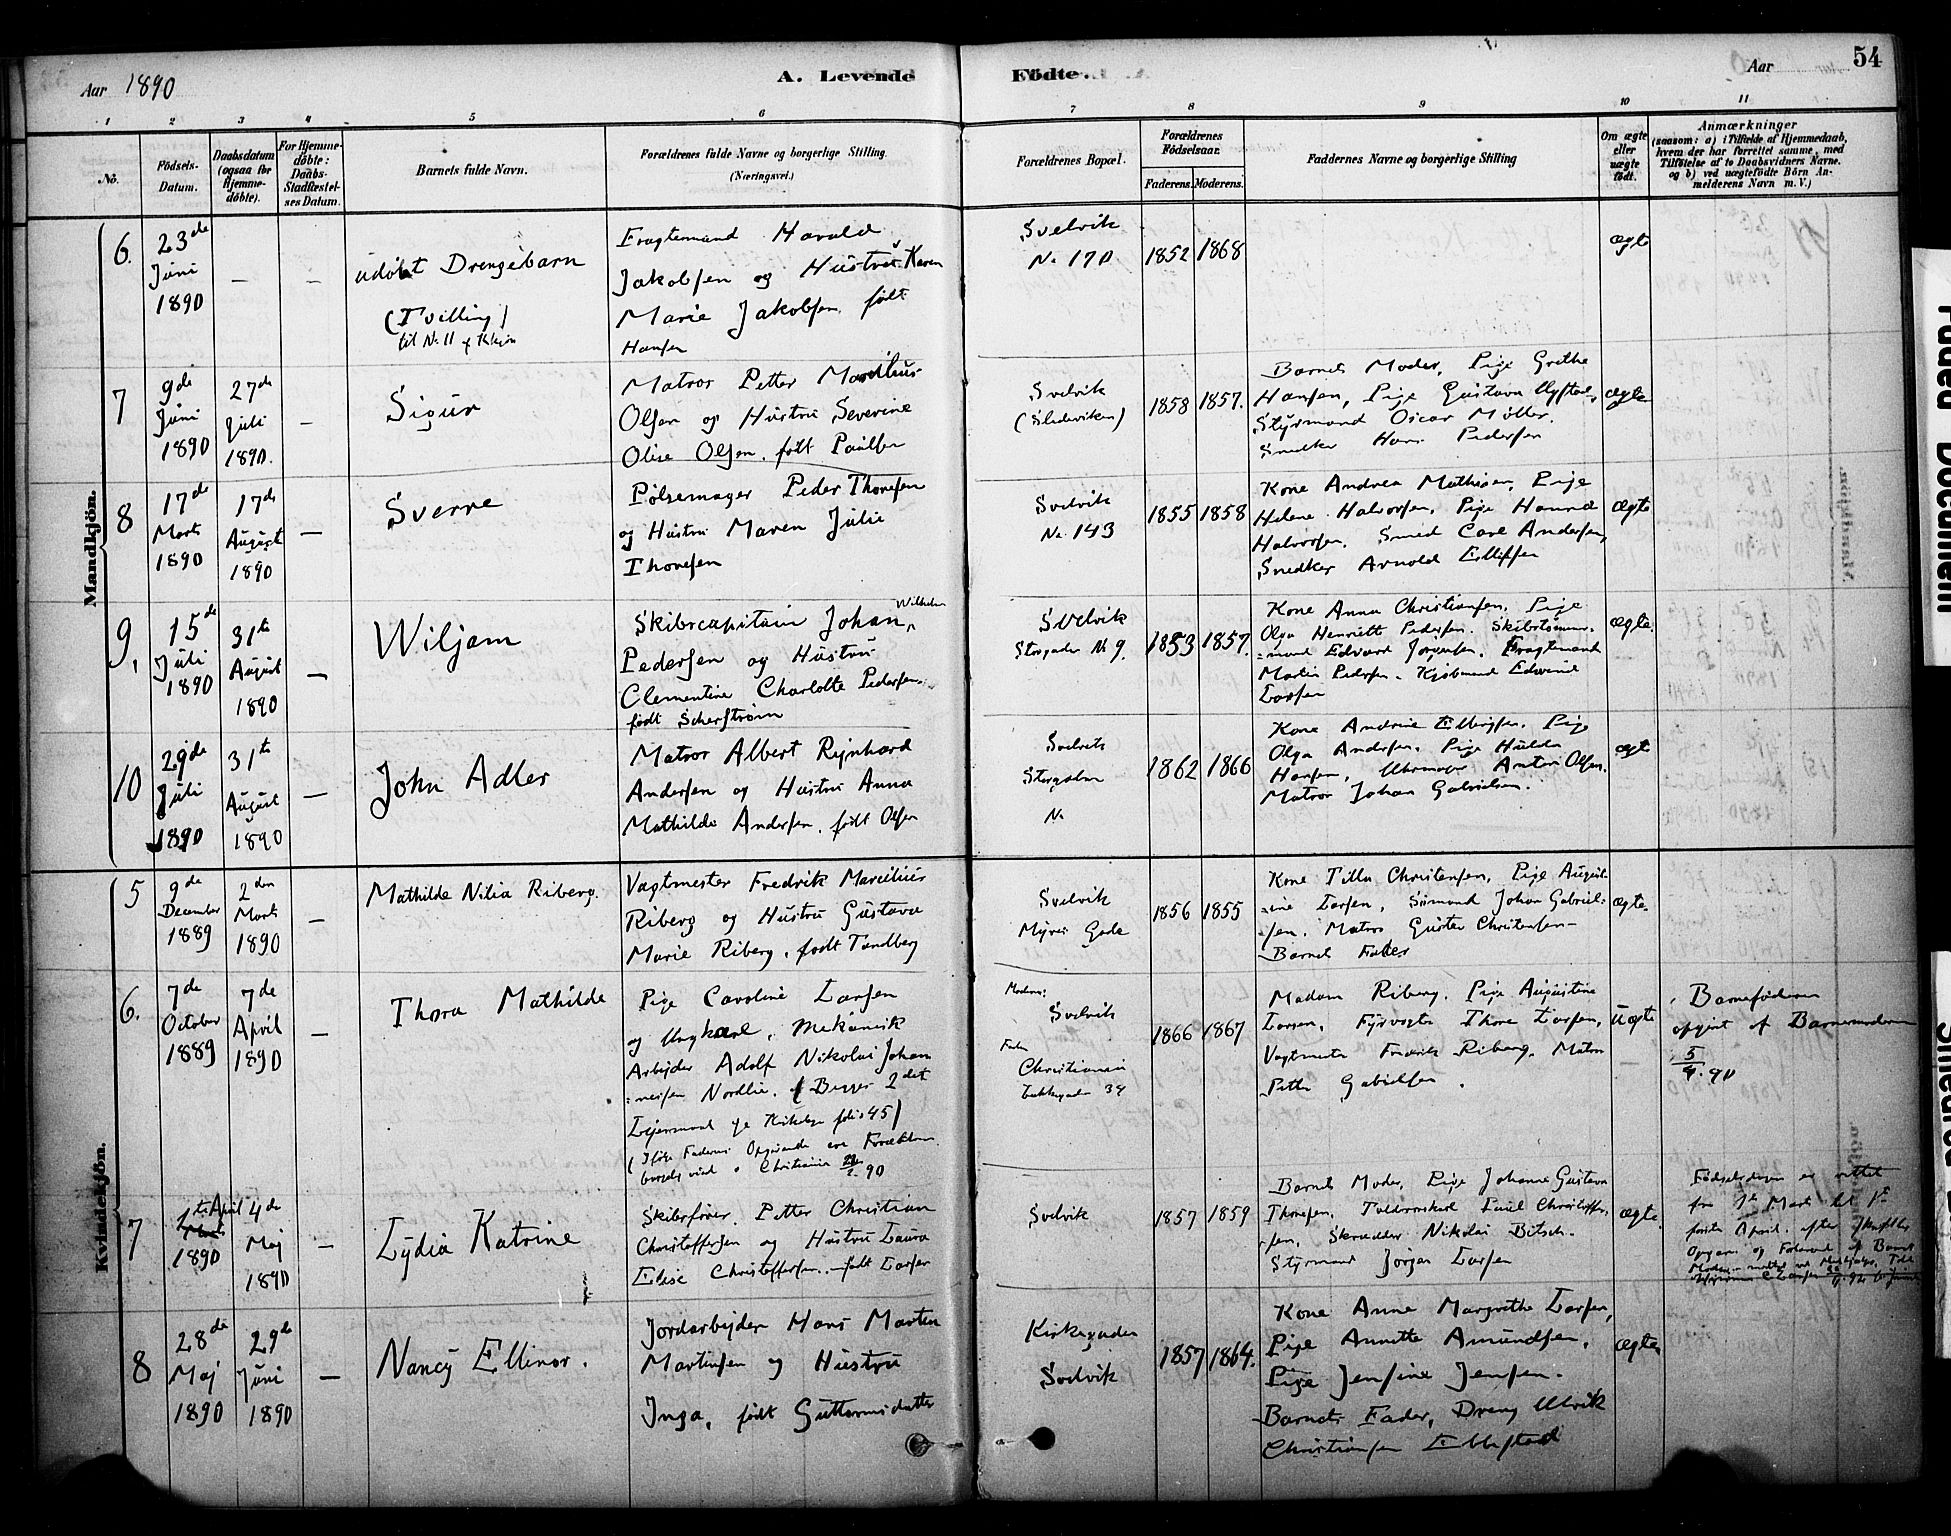 Aar 1890
A. Levende Födte.
Aar
54
1 2 3 4 5 6 7 8 9 10 11
No.
Födsels-Datum.
Daabsdatum (ogsaa for Hjemme-döbte).
For Hjemme-döbte: Daabs-Stadfæstel-ses Datum.
Barnets fulde Navn.
Forældrenes fulde Navne og borgerlige Stilling. (Næringsvei.)
Forældrenes Bopæl.
Forældrenes Födselsaar.
Faderens. Moderens.
Faddernes Navne og borgerlige Stilling
Om ægte eller uægte født.
Anmærkninger
(saasom: a) i Tilfælde af Hjemmedaab, hvem der har forrettet samme, med Tilföielse af to Daabsvidners Navne. og b) ved uægtefödte Börn Anmelderens Navn m. V.)
Mandkjön.
6.
23de Juni 1890
— —
udøbt Drengebarn
(Tvilling)
til No 11
Fragtemand Harald
Jakobsen og Hustru Karen
Marie Jakobsen, født
Hansen
Svelvik
No 170
1852 1868
ægte
7
9de Juni 1890
27de Juli 1890.
—
Sigur
Matros Petter Marcelius
Olsen og Hustru Severine
Olise Olsen, født Paulsen
Svelvik
1858 1857.
Barnets Moder, Pige Grethe
Hansen, Pige Gustava
Styrmand Oscar Møller.
Snedker Hans Pedersen
ægte
8
17de Marts 1890
17de August 1890
—
Sverre
Pølsemager Peder Thovesen
og Hustru Maren Julie
Thovesen
Svelvik
No. 143
1855 1858
Kone Andrea Mathisen, Pige
Helene Halvorsen, Pige Hanna
Halvorsen. Smed Carl Andersen,
Snedker Arnold Ellefsen
ægte
9.
15de Juli 1890
31te August 1890
—
Wiljam
Skibscapitain Johan Wilhelm
Pedersen og Hustru
Clementine Charlotte Pedersen,
født Scherstrøm
Svelvik
Storgaden No 9.
1853 1857.
Kone Anna Christiansen, Pige
Olga Henriette Pedersen. Skibstømmer-
=mand Edvard Jørgensen, Fragtemand
Martin Pedersen. Kjøbmand
Larsen
ægte.
10
29de Juli 1890
31te August 1890
—
John Adler
Matros Albert Rejnhard
Andersen og Hustru Anna
Mathilde Andersen, født Olsen
Svelvik
Storgaden
No
1862 1866
Kone Andrine Ellingsen, Pige
Olga Andersen, Pige Hulda
Hansen, Uhrmager Anton Olsen.
Matros Johan Gabrielsen.
ægte
Kvindekjön.
5
9de December 1889
2den Marts 1890
—
Mathilde Nilia Riberg.
Vagtmester Fredrik Marcelius
Riberg og Hustru Gustava
Marie Riberg, født Tandberg
Svelvik
Gade
1856 1855
Kone Tilla Christensen, Pige August-
=ine Larsen, Sømand Johan Gabriel-
=sen, Matros Gustav Christensen—
Barnets Fader
ægte.
6.
7de October 1889
7de April 1890
—
Thora Mathilde
Pige Caroline Larsen
og Ungkarl, Mekanisk
Arbejder Adolf Nikolai Johan-
=nesen Nordlie. (Begges 2det
Lejermaal folio 45)
Christiania 90
Moderens:
Svelvik
Faderens
Christiania
1866 1867
Madam Riberg, Pige Augustine
Larsen, Fyrvogter Thore Larsen,
Vagtmester Fredrik Riberg, Matros
Petter Gabrielsen.
Uægte
Barnefaderen
opgivet af Barnemoderen
90
7
1ste April
1890
4de Maj 1890
—
Lydia Katrine
Skibsfører Petter Christian
Christoffersen og Hustru Laura
Elise Christoffersen, født Larsen
Svelvik
1857 1859
Barnets Moder, Pige Johanne Gustava
Thovesen, Toldrorskarl Emil Christoffer-
=sen, Skrædder Nikolai Bitsch.
Styrmand Jørgen Larsen
ægte.
Fødselsdagen er rettet
fra 1te Marts til 1ste
April
8
28de Maj 1890
29de Juni 1890
—
Nancy Ellinor.
Jordarbejder Hans Martin
Martinsen og Hustru
Inga, født Guttormsdatter
Kirkegaden
Svelvik
1857 1864.
Kone Anne Margrethe Larsen,
Pige Annette Amundsen,
Pige Jensine Jensen.
Barnets Fader, Dreng Ulrik
Christiansen Ellefstad
ægte
Faded Document